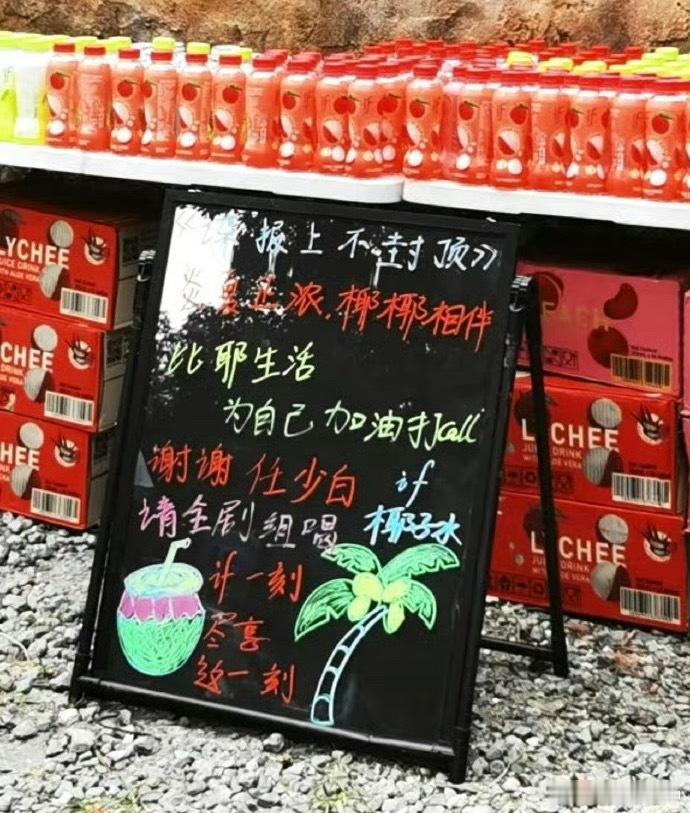 《谍报上不封顶》
炎夏正浓,椰椰相伴
比耶生活
为自己加油打call
谢谢任少白
请全剧组喝
if
椰子水
计一刻
尽享
这一刻
LYCHEE
JUICE DRINK
WITH ALOE VERA
LYCHEE
LYCHEE
PEACH
LYCHEE
JUICE DRINK
LYCHEE
JUICE DRINK
WITH ALOE VERA